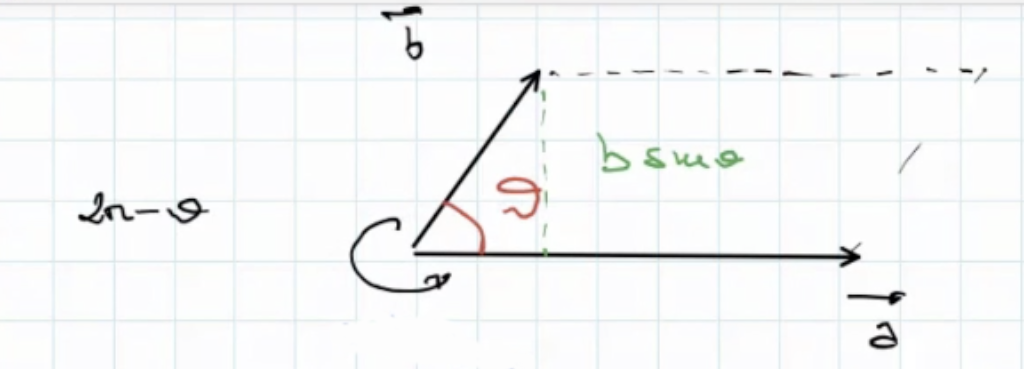 b
ϑ
b sinϑ
2π-ϑ
a